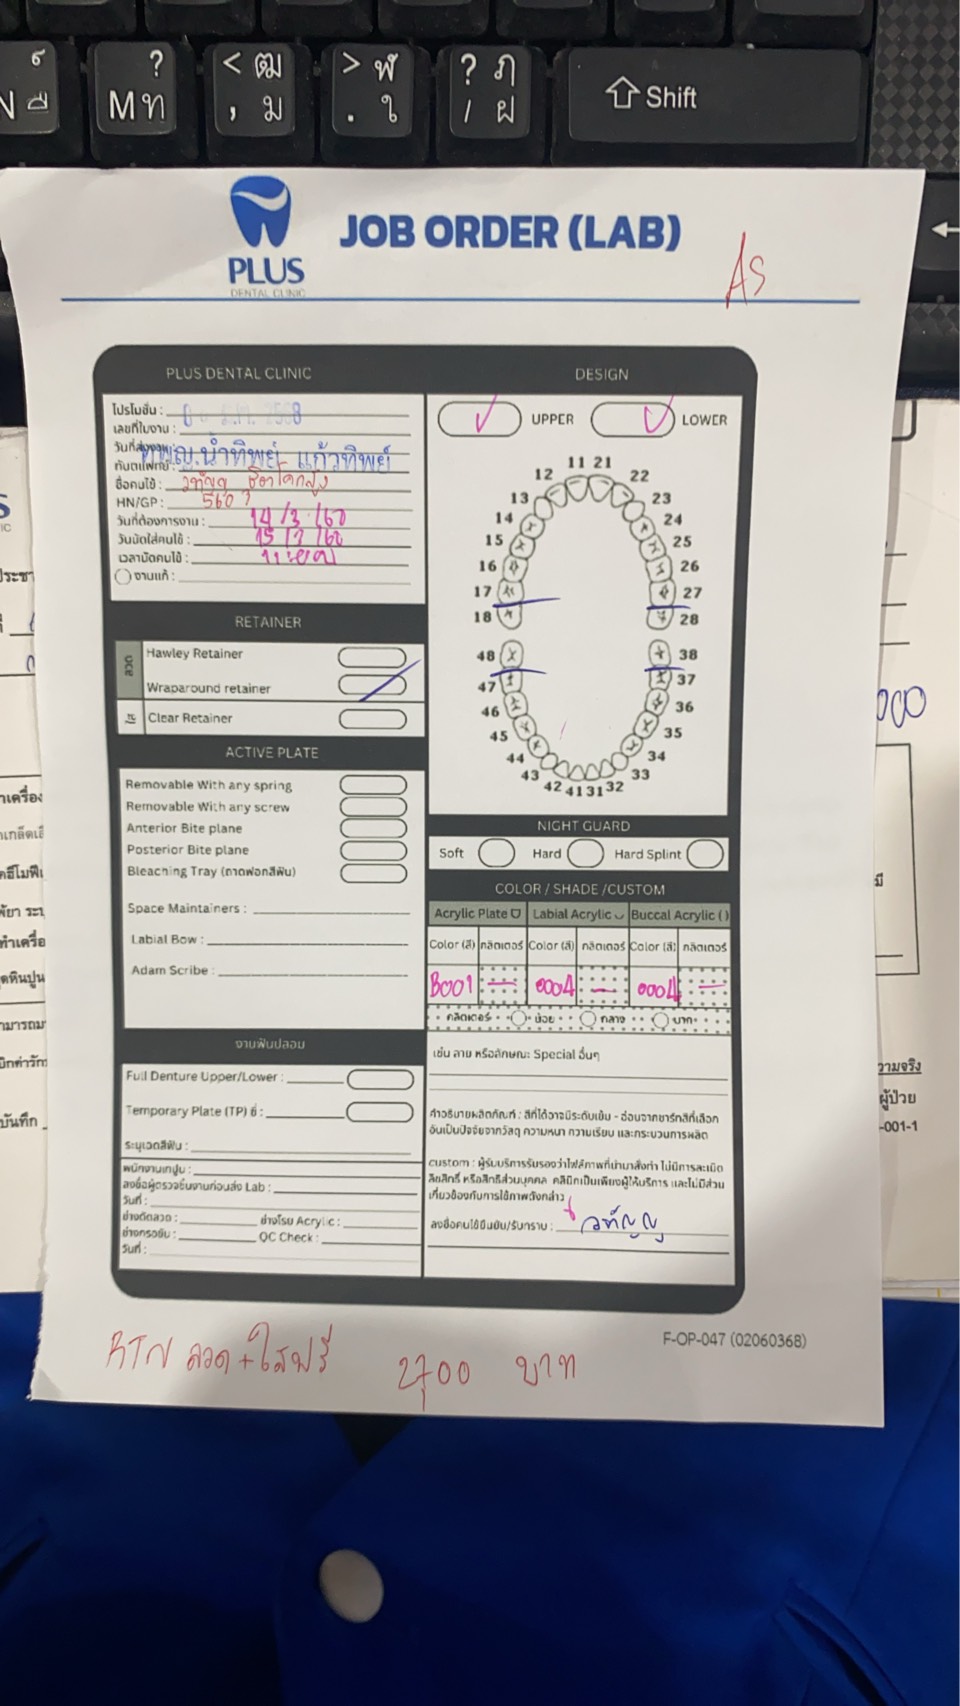 ธ
N ๘
? M ท
< ฒ , ม
> ฬ . ใ
? ฦ / ฝ
Shift
PLUS
DENTAL CLINIC
JOB ORDER (LAB)
AS
PLUS DENTAL CLINIC
โปรโมชั่น :
เลขที่ใบงาน :
2568
วันที่ส่งงาน :
ทันตแพทย์ :
ทพญ.น้ำทิพย์ แก้วทิพย์
ชื่อคนไข้ :
HN/GP : 5607
วันที่ต้องการงาน : 14/3/60
วันนัดใส่คนไข้ : 15
เวลานัดคนไข้ :
งานแก้ :
RETAINER
ลวด
Hawley Retainer
Wraparound retainer
ใส
Clear Retainer
ACTIVE PLATE
Removable With any spring
Removable With any screw
Anterior Bite plane
Posterior Bite plane
Bleaching Tray (ถาดฟอกสีฟัน)
Space Maintainers :
Labial Bow :
Adam Scribe :
งานฟันปลอม
Full Denture Upper/Lower :
Temporary Plate (TP) ซี่ :
ระบุเฉดสีฟัน :
พนักงานเทปูน :
ลงชื่อผู้ตรวจชิ้นงานก่อนส่ง Lab :
วันที่ :
ช่างดัดลวด : ช่างโรย Acrylic :
ช่างกรอขัด : QC Check :
วันที่ :
DESIGN
UPPER LOWER
11 21
12 22
13 23
14 24
15 25
16 26
17 27
18 28
48 38
47 37
46 36
45 35
44 34
43 33
42 41 31 32
NIGHT GUARD
Soft Hard Hard Splint
COLOR / SHADE /CUSTOM
Acrylic Plate Labial Acrylic Buccal Acrylic ( )
Color (สี) กลิตเตอร์ Color (สี) กลิตเตอร์ Color (สี) กลิตเตอร์
B001 — 0004 — 0004 —
กลิตเตอร์ น้อย กลาง มาก
เช่น ลาย หรือลักษณะ Special อื่นๆ
คำอธิบายผลิตภัณฑ์ : สีที่ได้อาจมีระดับเข้ม - อ่อนจากชาร์ทสีที่เลือก
อันเป็นปัจจัยจากวัสดุ ความหนา ความเรียบ และกระบวนการผลิต
custom : ผู้รับบริการรับรองว่าไฟล์ภาพที่นำมาสั่งทำ ไม่มีการละเมิด
ลิขสิทธิ์ หรือสิทธิส่วนบุคคล คลินิกเป็นเพียงผู้ให้บริการ และไม่มีส่วน
เกี่ยวข้องกับการใช้ภาพดังกล่าว
ลงชื่อคนไข้ยืนยัน/รับทราบ : วทัญญู
F-OP-047 (02060368)
RTN ลวด+ใสฟรี 2700 บาท
000
มี
วามจริง
ผู้ป่วย
-001-1
ประชา
บันทึก